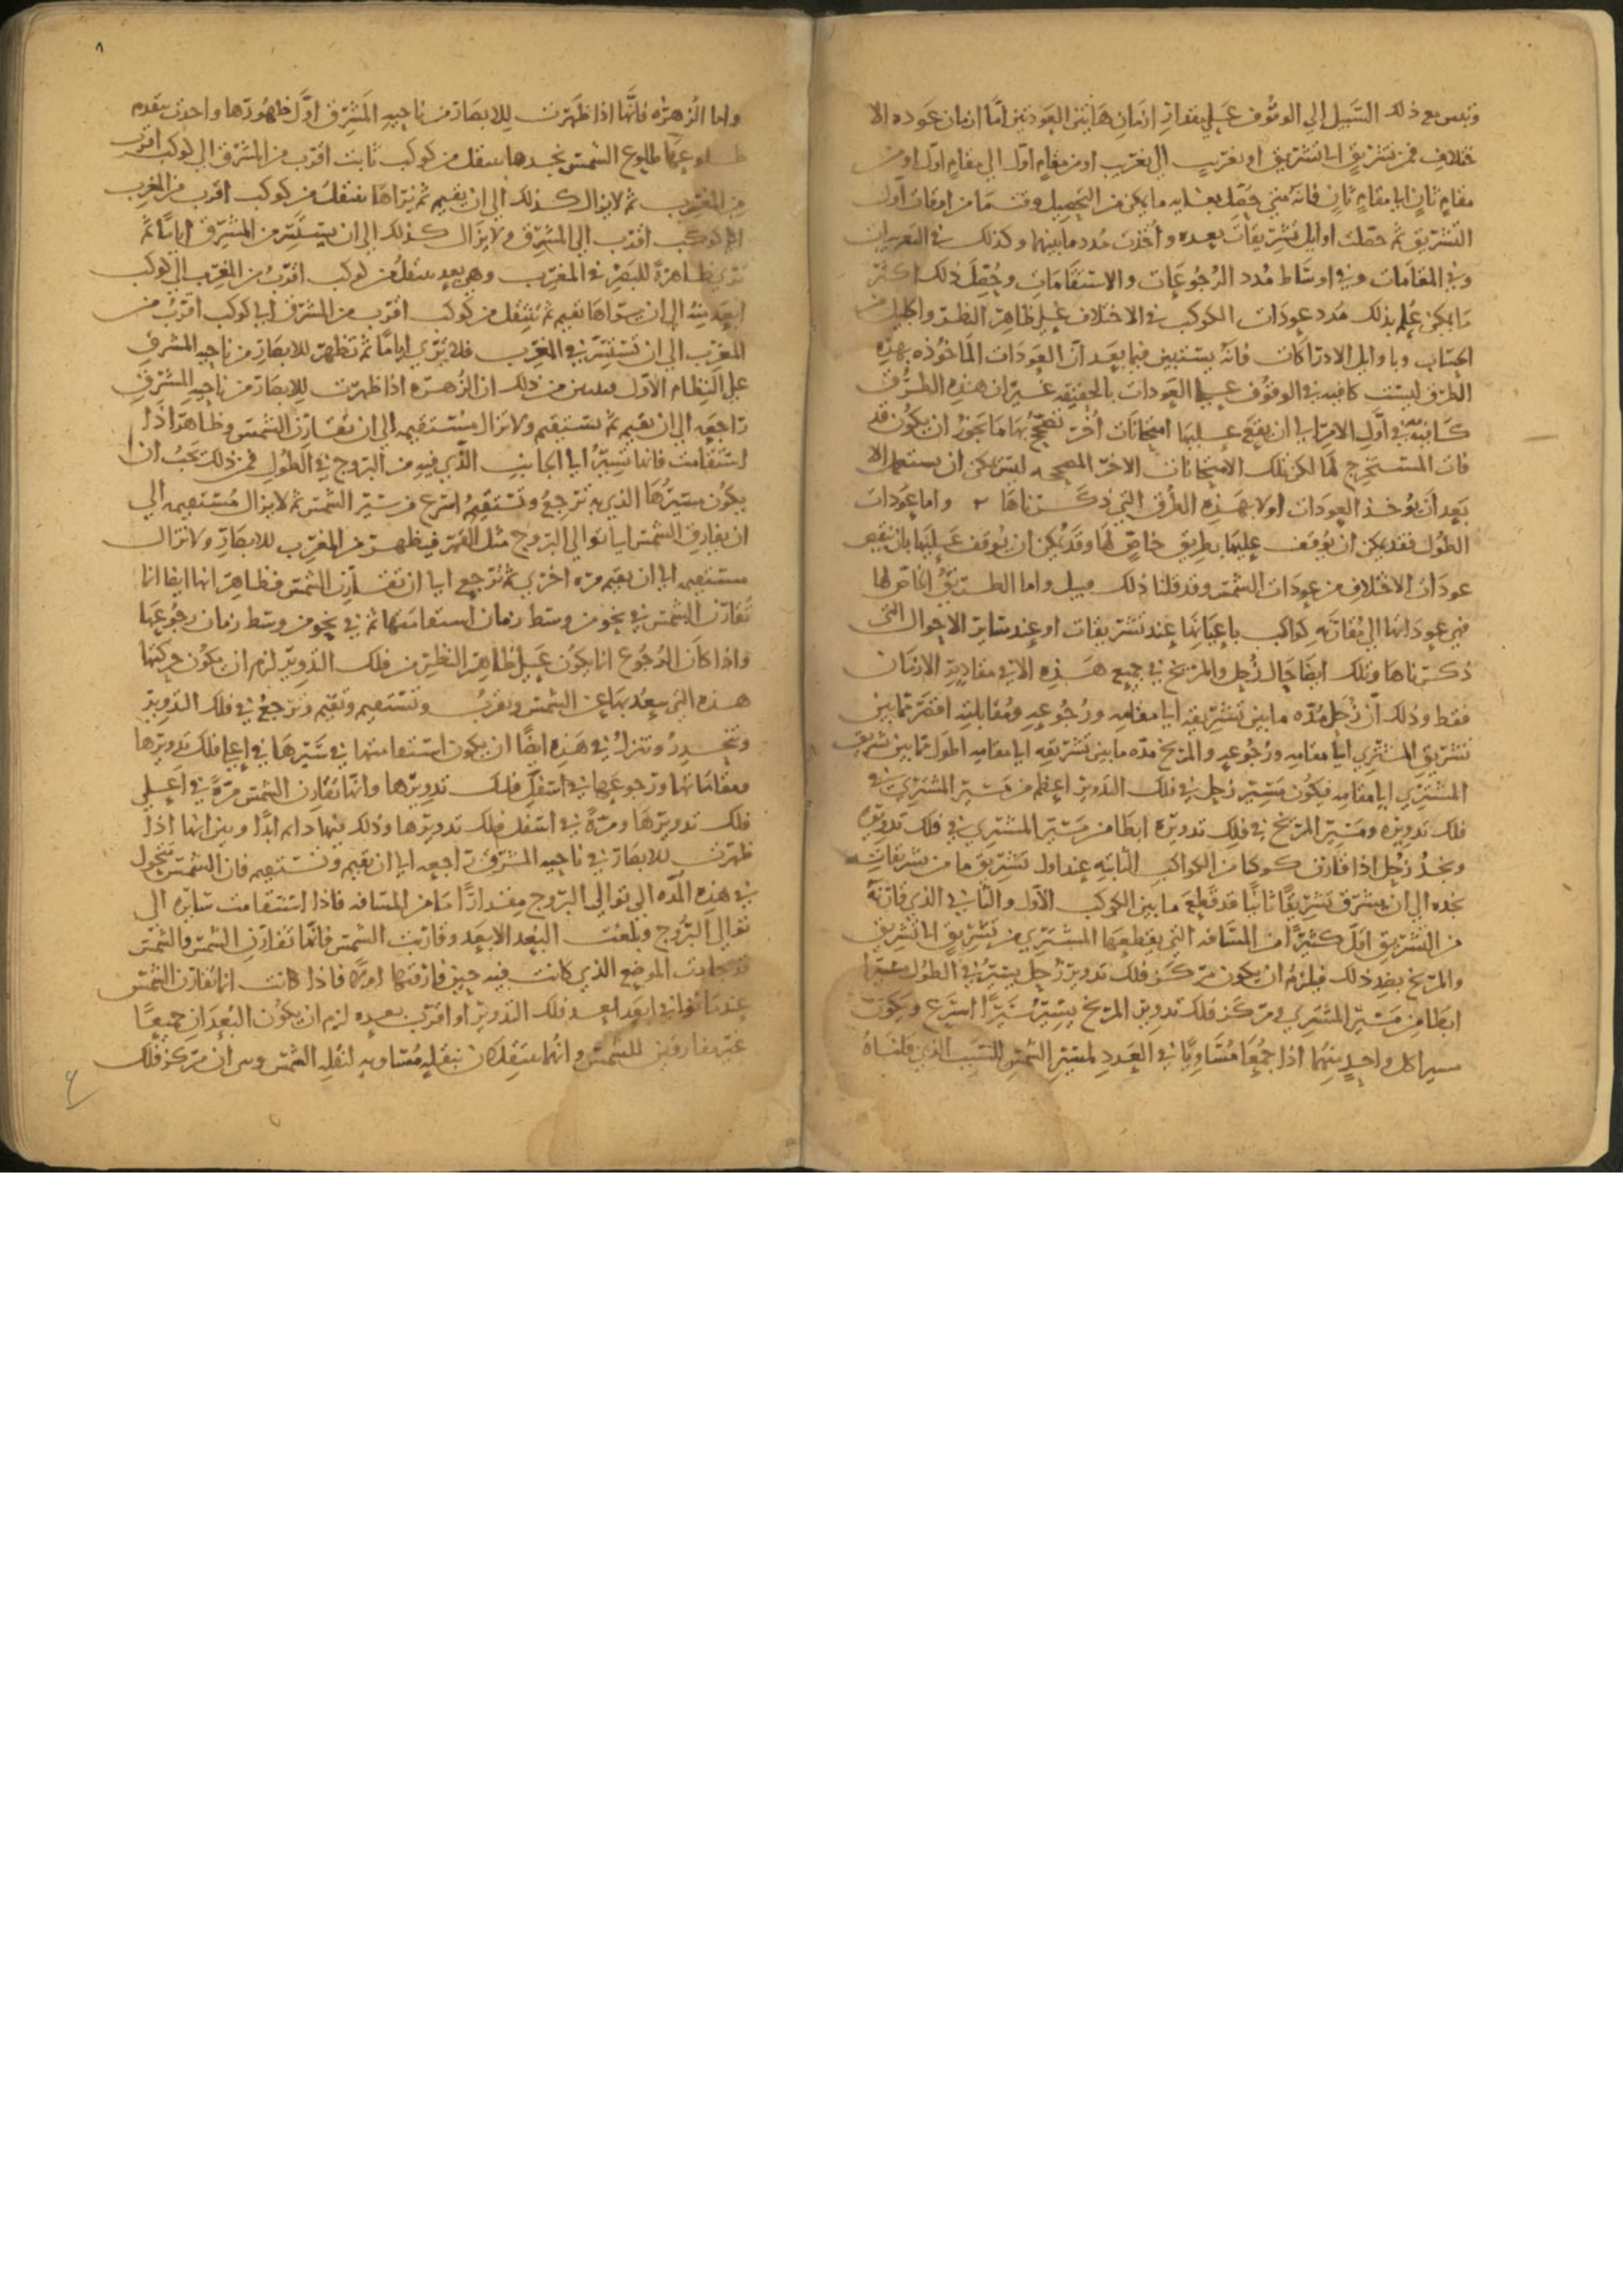 وتبين مع ذلك السبيل الى الوقوف على مقدار ازمان هاتين العودتين اما ازمان عوده الا
ختلاف فمن تشريق الى تشريق او تغريب الى تغريب او من مقام اول الى مقام اول او من
مقام ثان الى مقام ثان فانه متى حصل بغايه ما يمكن من التحصيل وقت ما من اوقات اول
التشريق ثم حصلت اوايل تشريقات بعده واخذت مدد ما بينها وكذلك في التغريبات
وفي المقامات وفي اوساط مدد الرجوعات والاستقامات وحصل ذلك اكثر
ما يمكن علم بذلك مدد عودات الكوكب في الاختلاف على ظاهر النظر
الحساب وباوايل الادراكات فانه يستبين فيما بعد ان العودات الماخوذه بهذه
الطرق ليست كافيه في الوقوف على العودات بالحقيقه غير ان هذه الطرق
كافيه في اول الامر الى ان يقع عليها امتحانات اخر تصحح بها ما يجوز ان يكون قد
فات المستخرج لها لكن تلك الامتحانات الاخر المصححه ليس يمكن ان يستعمل الا
بعد ان توخذ العودات اولا بهذه الطرق التي ذكرناها واما عودات
الطول فقد يمكن ان يوقف عليها بطريق خاص لها وقد يمكن ان يوقف عليها بان ينقص
عودات الاختلاف من عودات الشمس وقد قلنا ذلك قبيل واما الطريق الخاص لها
فهي عوداتها الى مقارنه كواكب باعيانها عند تشريقات او عند ساير الاحوال التي
ذكرناها وتلك ايضا حال زحل والمريخ في جميع هذه الا في مقادير الازمان
فقط وذلك ان زحل مده ما بين تشريقه الى مقامه ورجوعه ومقابلته اقصر مما بين
تشريق المشتري الى مقامه ورجوعه والمريخ مده ما بين تشريقه الى مقامه اطول مما بين تشريق
المشتري الى مقامه فيكون مسير زحل في فلك التدوير اعظم من مسير المشتري في
فلك تدويره ومسير المريخ في فلك تدويره ابطا من مسير المشتري في فلك تدويره
ونجد زحل اذا قارن كوكبا من الكواكب الثابته عند اول تشريق ما من تشريقاته
نجده الى ان يشرق تشريقا ثانيا قد قطع ما بين الكوكب الاول والثاني الذي قارنه
من التشريق اقل كثيرا من المسافه التي يقطعها المشتري من تشريق الى تشريق
والمريخ بضد ذلك فيلزم ان يكون مركز فلك تدوير زحل يسير في الطول سيرا
ابطا من مسير المشتري ومركز فلك تدوير المريخ يسير سيرا اسرع ويكون
مسيرا كل واحد منهما اذا جمعا مساويا في العدد لمسير الشمس للسبب الذي قلناه
٨
واما الزهره فانها اذا ظهرت للابصار من ناحيه المشرق اول ظهورها واحدث يتقدم
طلوعها طلوع الشمس نجدها تنتقل من كوكب ثابت اقرب من المشرق الى كوكب اقرب
من المغرب ثم لا يزال كذلك الى ان يقيم ثم نراها تنتقل من كوكب اقرب من المغرب
الى كوكب اقرب الى المشرق ولا يزال كذلك الى ان يستتر من المشرق اياما ثم
ترى ظاهرة للبصر في المغرب وهي بعد تنتقل من كوكب اقرب من المغرب الى كوكب
ابعد منه الى ان نراها تقيم ثم تنتقل من كوكب اقرب من المشرق الى كوكب اقرب من
المغرب الى ان تستتر في المغرب فلا ترى اياما ثم تظهر للابصار من ناحيه المشرق
على النظام الاول فتبين من ذلك ان الزهره اذا ظهرت للابصار من ناحيه المشرق
راجعه الى ان تقيم ثم تستقيم ولا تزال مستقيمه الى ان تقارن الشمس وظاهر اذا
استقامت فانما تسير الى الجانب الذي فيه من البروج في الطول فمن ذلك يجب ان
يكون مسيرها الذي به ترجع وتستقيم اسرع من سير الشمس ثم لا يزال مستقيمه الى
ان يفارق الشمس الى توالي البروج مثل القمر فيظهر من المغرب للابصار ولا تزال
مستقيمه الى ان تقيم مره اخرى ثم ترجع الى ان تقارن الشمس فظاهر انها ايضا انما
تقارن الشمس في نحو من وسط زمان استقامتها ثم في نحو من وسط زمان رجوعها
واذا كان الرجوع انما يكون على ظاهر النظر من فلك التدوير لزم ان يكون حركتها
هذه التي يبعد بها عن الشمس وتقرب وتستقيم وتقيم وترجع في فلك التدوير
وتنحدر وتنزل في هذه ايضا ان يكون استقامتها في سيرها في اعلى فلك تدويرها
ومقاماتها ورجوعها في اسفل فلك تدويرها وانها تقارن الشمس مرة في اعلى
فلك تدويرها ومرة في اسفل فلك تدويرها وذلك فيها دايم ابدا وبين انها اذا
ظهرت للابصار في ناحيه المشرق راجعه الى ان تقيم وتستقيم فان الشمس تتحول
في هذه المده الى توالي البروج مقدارا ما من المسافه فاذا استقامت سايره الى
توالي البروج وبلغت البعد الابعد وقاربت الشمس فانما تقارن الشمس والشمس
قد جازت الموضع الذي كانت فيه حين فارقتها اولا فاذا كانت انما تقارن الشمس
عندما توافي ابعد بعد فلك التدوير او اقرب بعده لزم ان يكون البعدان جميعا
غير مفارقين للشمس وانهما ينتقلان بنقله مساويه لنقله الشمس وبين ان مركز فلك